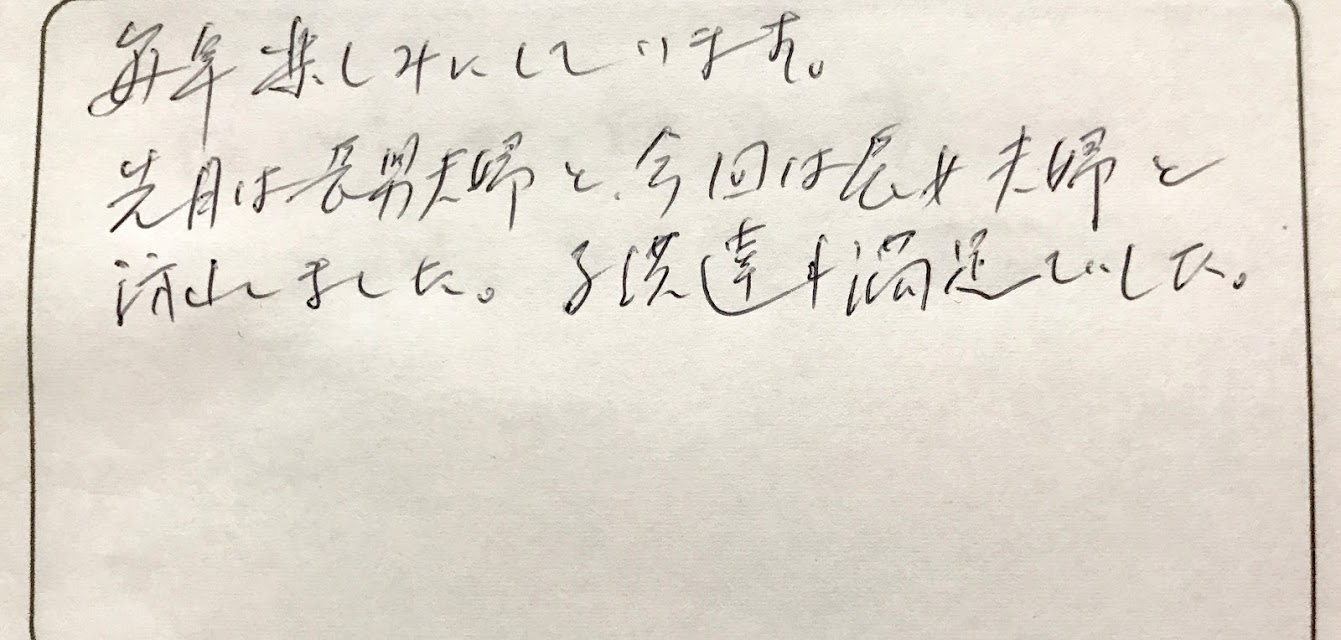 毎年楽しみにしています。
先月は長男夫婦と、今回は長女夫婦と
流しました。子供達も満足でした。